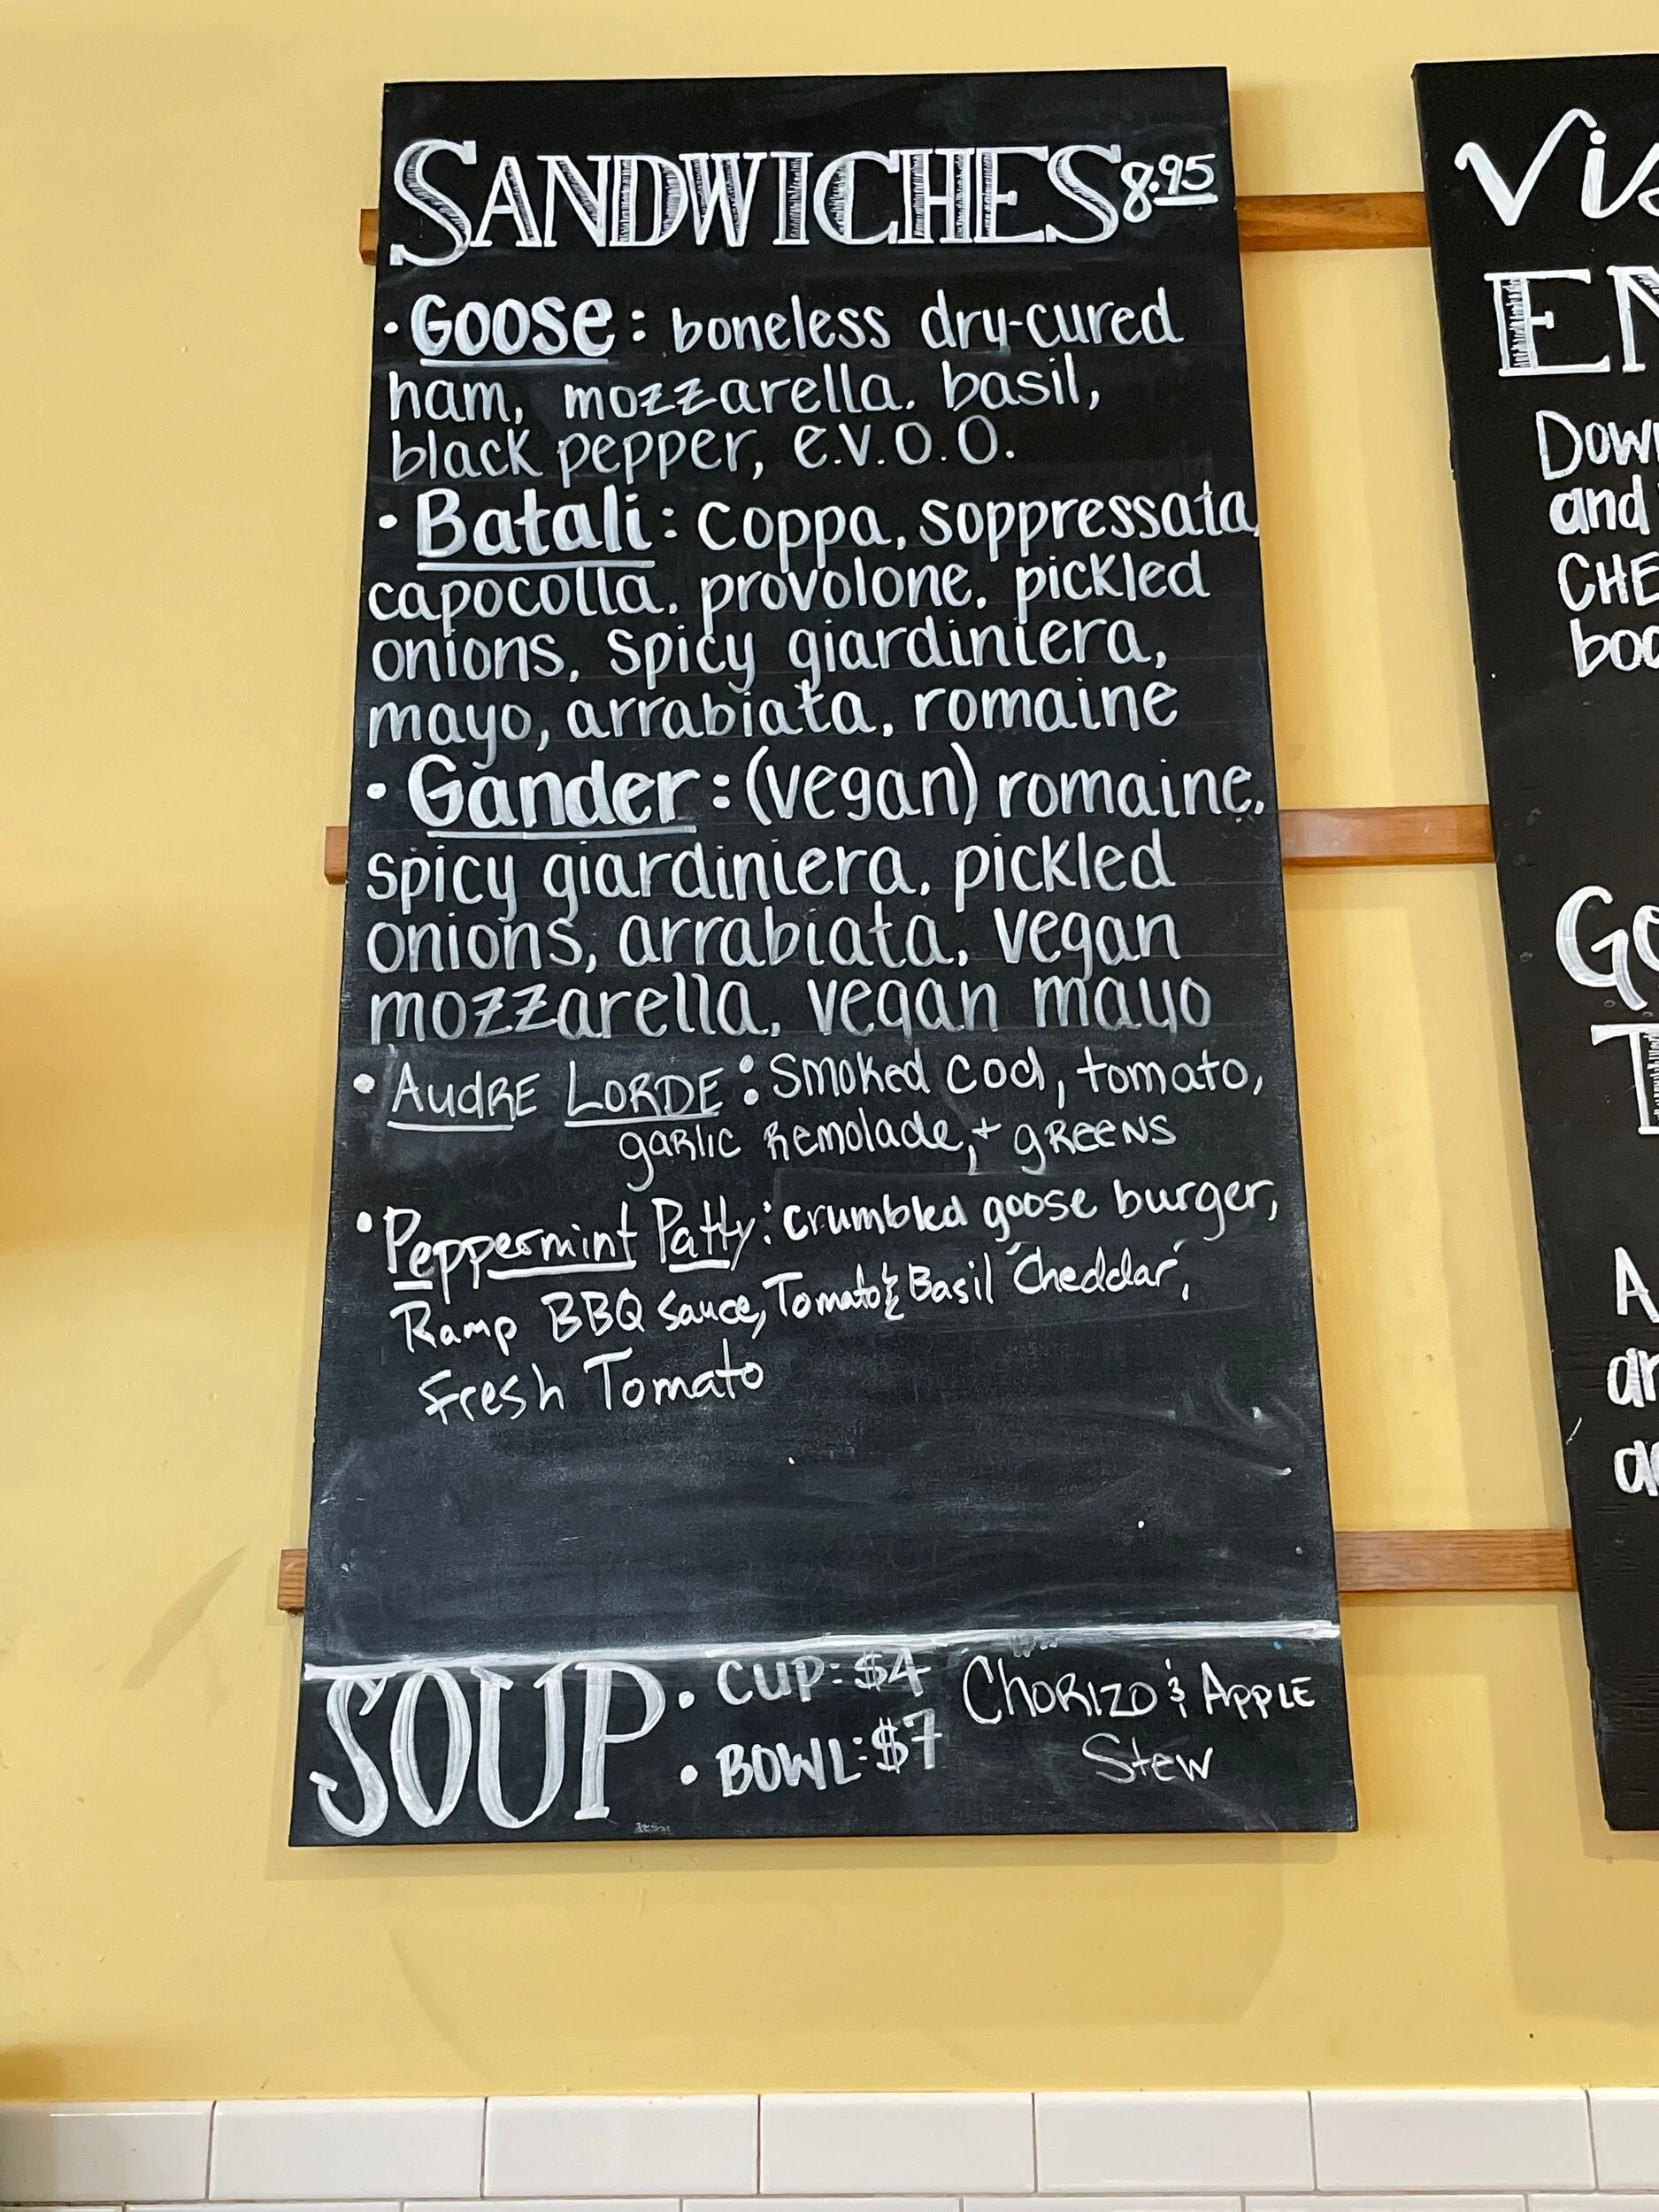 SANDWICHES 8.95
• Goose: boneless dry-cured
ham, mozzarella, basil,
black pepper, e.v.o.o.
• Batali: coppa, soppressata,
capocolla, provolone, pickled
onions, spicy giardiniera,
mayo, arrabiata, romaine
• Gander: (vegan) romaine,
spicy giardiniera, pickled
onions, arrabiata, vegan
mozzarella, vegan mayo
• AUDRE LORDE: Smoked cod, tomato,
garlic Remolade, + greens
• Peppermint Patty: crumbled goose burger,
Ramp BBQ Sauce, Tomato & Basil "Cheddar",
Fresh Tomato
SOUP
• CUP: $4
• BOWL: $7
Chorizo & Apple
Stew
and